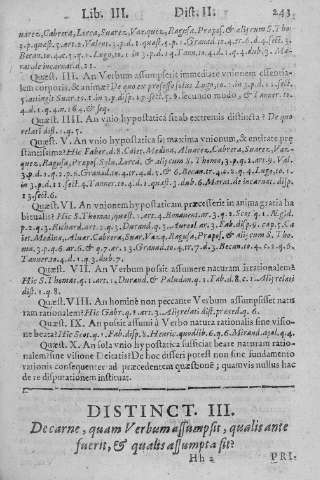 Lib. III. Dist. II. 243
uarez, Cabrera, Lorca, Suarez, Vazquez, Ragusa, Propos. & alij cum S. Tho
3. p. quæst. 3. art. 2. Valen. 3. p. d. 1. quæst. 4. p. 1. Granad. 10. 4. tr. 3. d. 4. sect. 3.
Becan. 10. 4. c. 3. q. 1.
ras. de incarnat. d. 21.
Quæst. IIII. An Verbum assumpserit immediate vnionem essentia-
lem corporis, & animæ? De quo ex professo solus Lugo. 10. 1. in 3. p. d. 11. sect.
5. attingit Suar. 10. 1. in 3. p. disp. 17. sect. 5. §. secundo modo, & Tanner. 10.
4. d. 1. q. 4. q. 164. & seq.
Quæst. IIII. An vnio hypostatica sit ab extremis distincta? De quo
relati dist. 1. q. 5.
Quæst. V. An vnio hypostatica sit maxima vnionum, & entitate præ
stantissima? Hic Faber. d. 8. Caiet. Medina, Aluarez, Cabrera, Suarez, Vaz-
quez, Ragusa, Propos. Sylu. Lorca, & alij cum S. Thoma, 3. p. q. 2. art. 9. Val.
3. p. d. 1. q. 2. p. 5. Granad. 10. 4. tr. 4. d. 5. & 6. Becan. 10. 4. c. 2. q. 4. Lugo. 10. 1.
in 3. p. d. 12. sect. 4. Tanner. 10. 4. d. 1. quæst. 3. dub. 6. Morat. de incarnat. disp.
13. sect. 6.
Quæst. VI. An vnionem hypostaticam præcesserit in anima gratia ha
bitualis? Hic S. Thomas, quæst. 1. art. Bonauent. ar. 3. q. 2. Scot. q. 1. Ægid.
p. 2. q. 3. Richard. art. 2. q. 3. Durand. q. 3. Aureol. ar. 3. Fab. d. 9. cap. 2. Ca
iet. Medina, Aluar. Cabrera, Suar. Vaz. Ragusa, Propos. & alij cum S. Tho,
ma, 3. p. q. 6. ar. 6. & q. 7. ar. 13. Granad. 10. 4. tr. 7. d. 3. Becan. 10. 4. c. 2. q. 6.
Tanner. 10. 4. d. 1. q. 3. dub. 7.
Quæst. VII. An Verbum possit assumere naturam irrationalem?
Hic S. Thomas. q. 1. art. 1. Durand, & Paludan. q. 1. Fab. d. 8. c. 1. Alij relati
dist. 1. q. 8.
Quæst. VIII. An homine non peccante Verbum assumpsisset natu
ram rationalem? Hic Gabr. q. 1. art. 3. Alij relati dist. præced. q. 6.
Quæst. IX. An possit assumi à Verbo natura rationalis sine visio-
ne beata? Hic Scot. q. 1. Fab. disp. 3. Henric. quodlib. 6. q. 6.
Quæst. X. An sola vnio hypostatica sufficiat beare naturam ratio-
nalem sine visione Deitatis? De hoc disseri potest non sine fundamento
rationis consequenter ad præcedentem quæstionē; quamvis nullus hac
de re disputationem instituat.
DISTINCT. III.
De carne, quam Verbum assumpsit, qualis ante
fuerit, & qualis assumpta sit?
Hh 2 PRI-